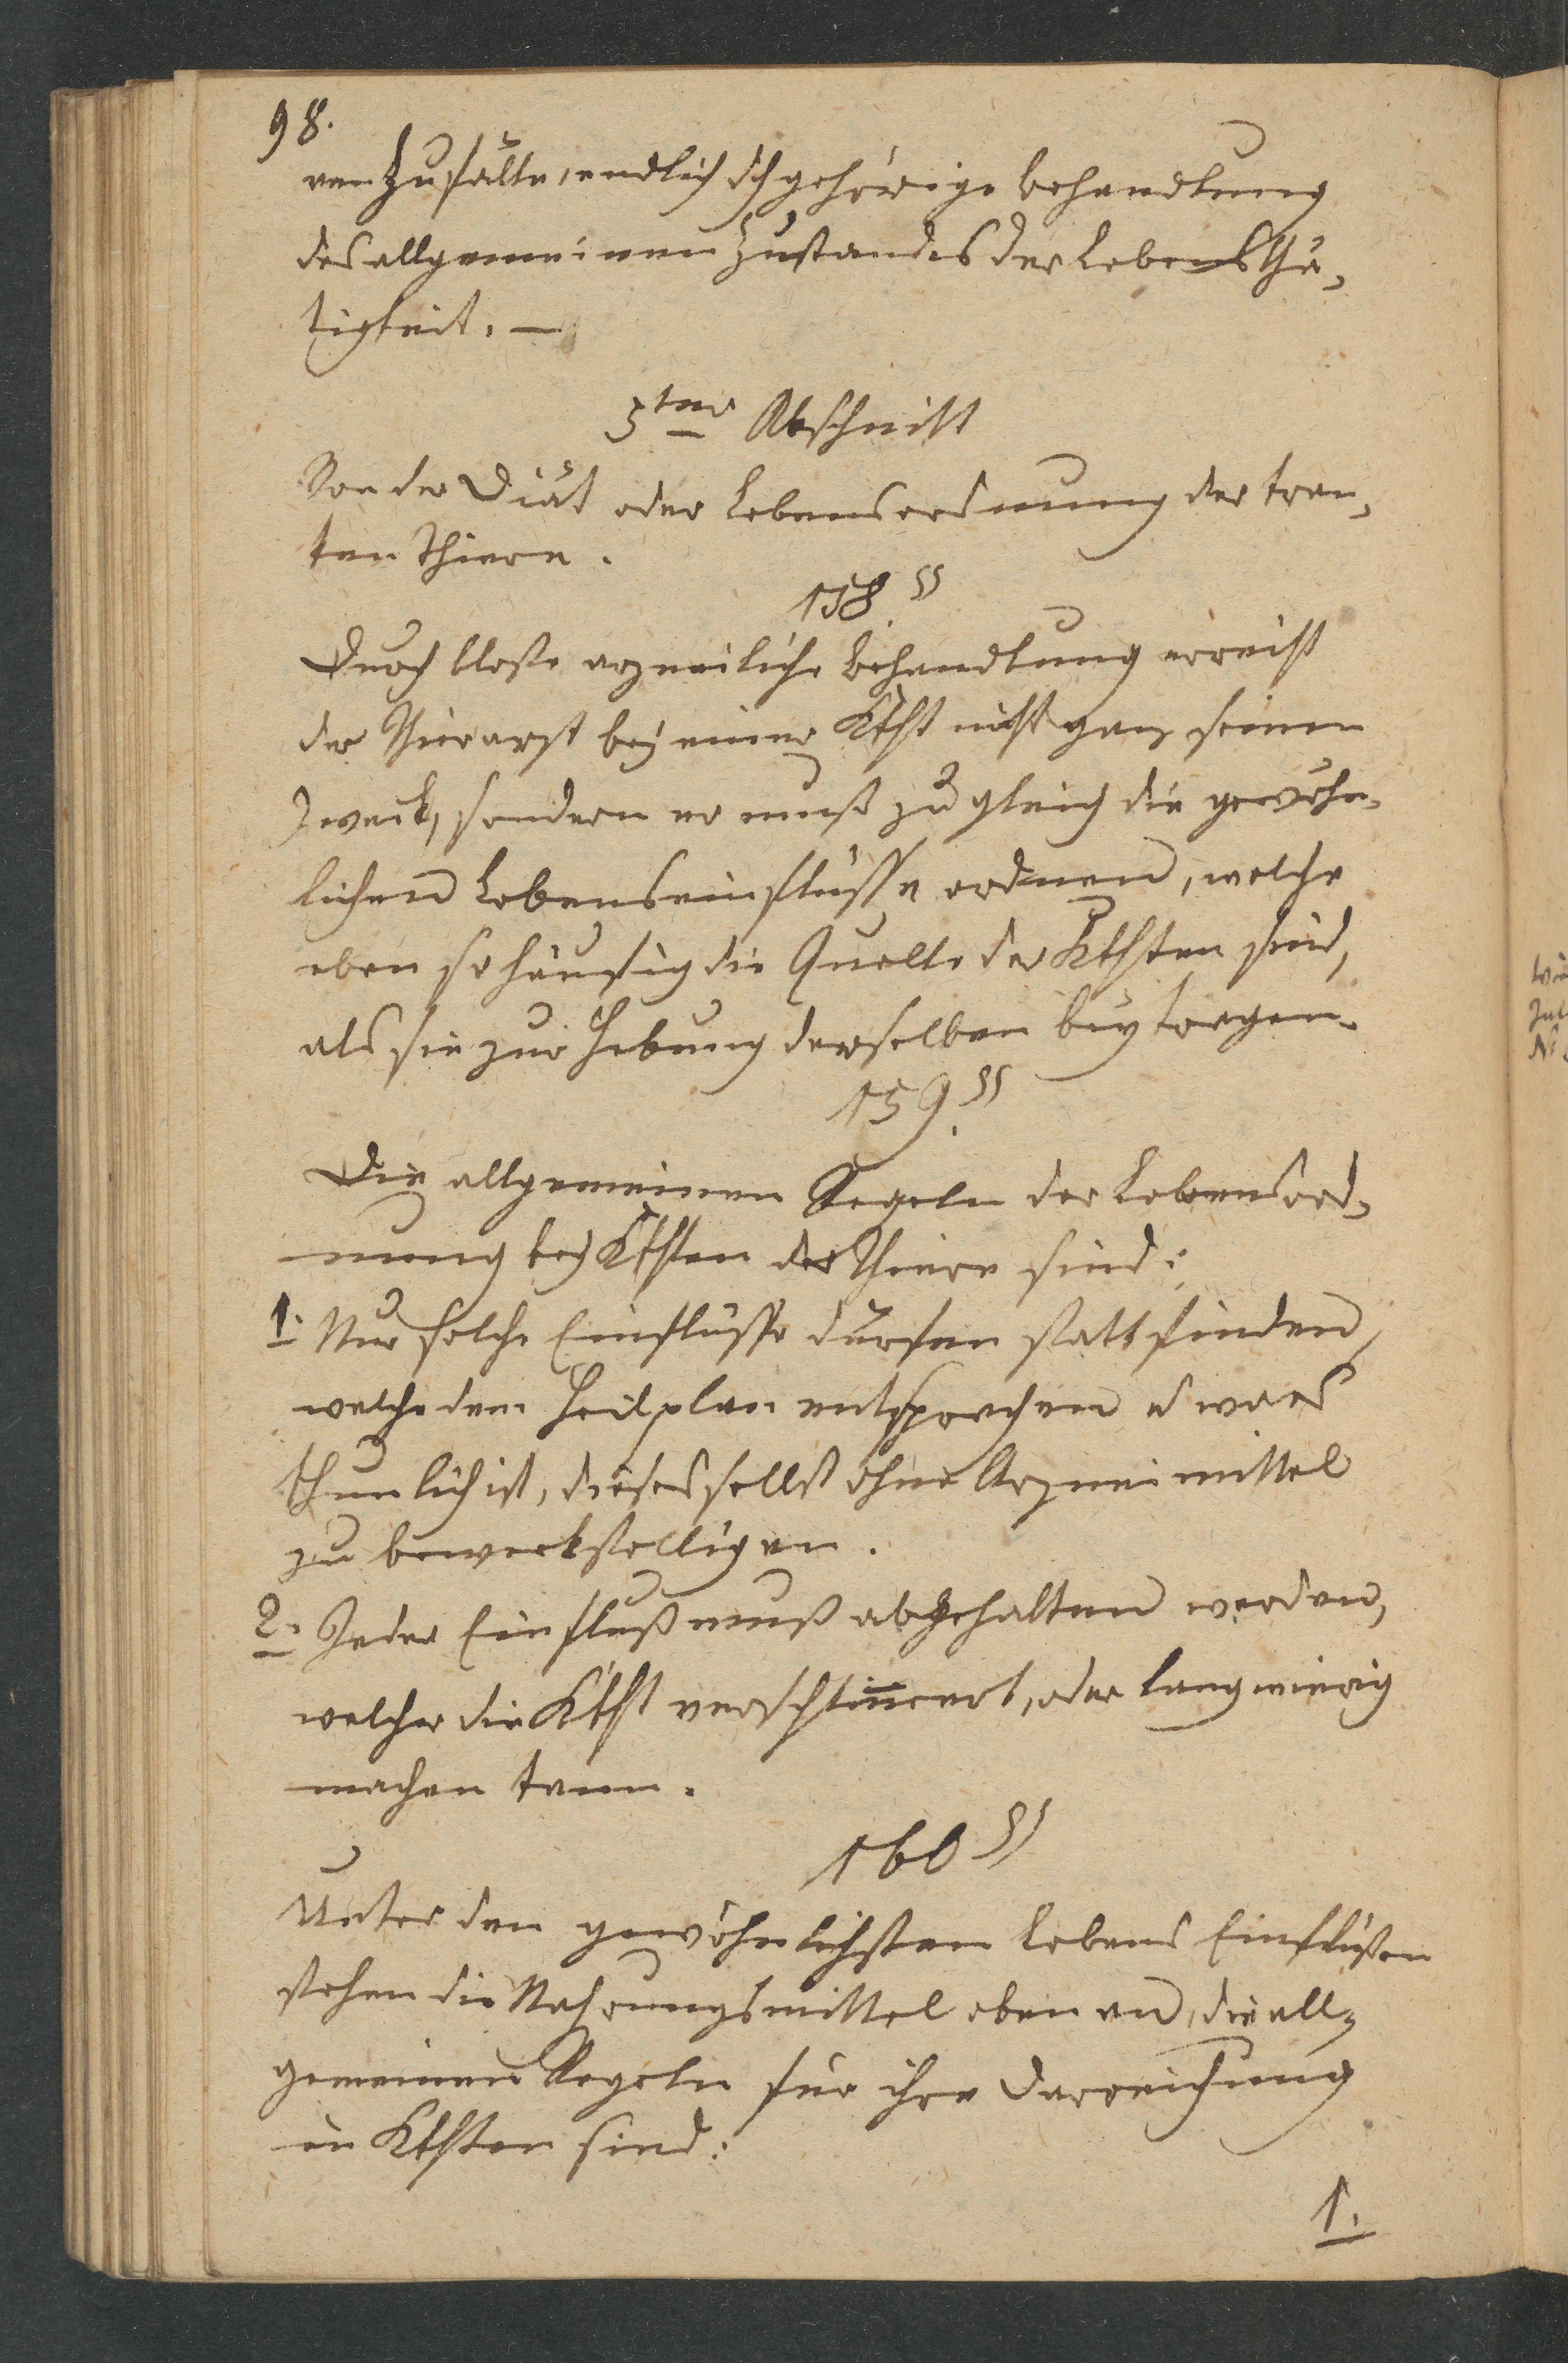 98.
ren Zufälle, endlich dh gehörige Behandlung
des allgemeinen Zustandes der Lebensthä-
tigkeit. —
3ter Abschnitt
Von der Diät oder Lebensordnung der kran-
ken Thiere.
158. §§
Durch bloße arzneiliche Behandlung erreicht
der Thierarzt bey einer Kkht nicht ganz seinen
Zweck, sondern er muß zu gleich die gewöhn-
lichen Lebenseinflüsse ordnen, welche
eben so häufig die Quelle der Kkhten sind,
als sie zur Hebung derselben beytragen.
159. §§
Die allgemeinen Regeln der Lebensord-
nung bey Kkhten der Thiere sind:
1. Nur solche Einflüsse dürfen stattfinden,
welche dem Heilplan entsprechen u was
thunlich ist, dieses selbst ohne Arzneimittel
zu bewerkstelligen.
2. Jeder Einfluß muß abgehalten werden,
welcher die Kkht verschlimmert, oder langwierig
machen kann.
160 §§
Unter den gewöhnlichsten Lebens Einflüßen
stehen die Nahrungsmittel oben an, die all-
gemeinen Regeln für ihre Darreichung
in Kkhten sind:
1.